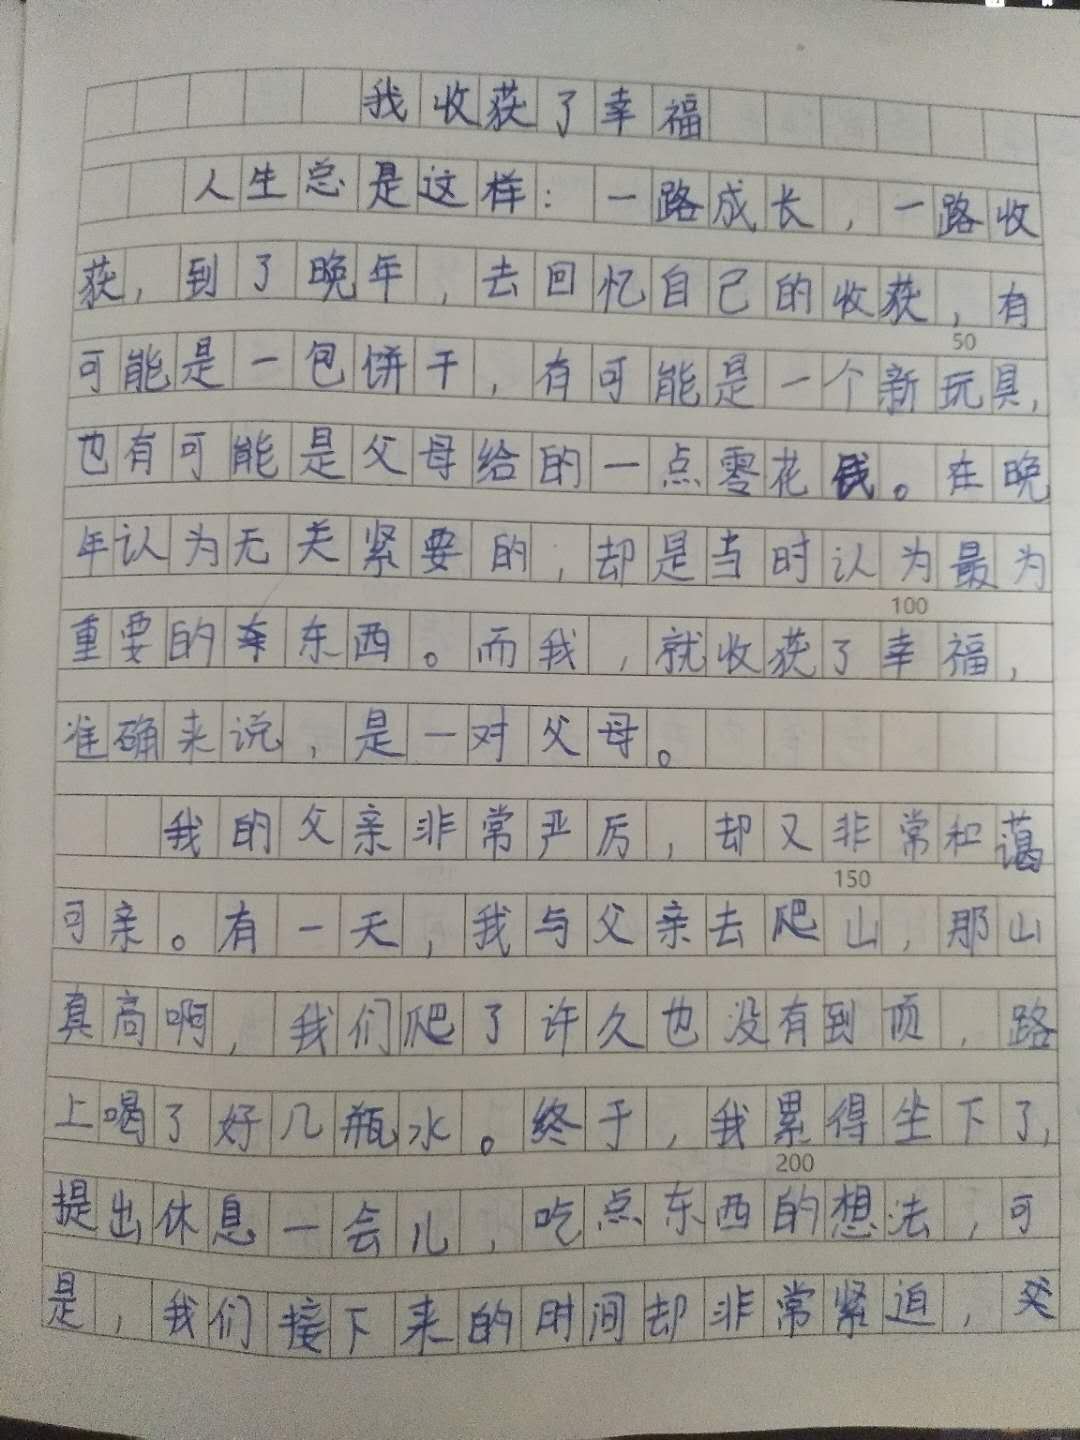 我收获了幸福
人生总是这样：一路成长，一路收
获，到了晚年，去回忆自己的收获，有
50
可能是一包饼干，有可能是一个新玩具，
也有可能是父母给的一点零花钱。在晚
年认为无关紧要的，却是当时认为最为
100
重要的东西。而我，就收获了幸福，
准确来说，是一对父母。
我的父亲非常严厉，却又非常和蔼
150
可亲。有一天，我与父亲去爬山，那山
真高啊，我们爬了许久也没有到顶，路
上喝了好几瓶水。终于，我累得坐下了，
200
提出休息一会儿，吃点东西的想法，可
是，我们接下来的时间却非常紧迫，父